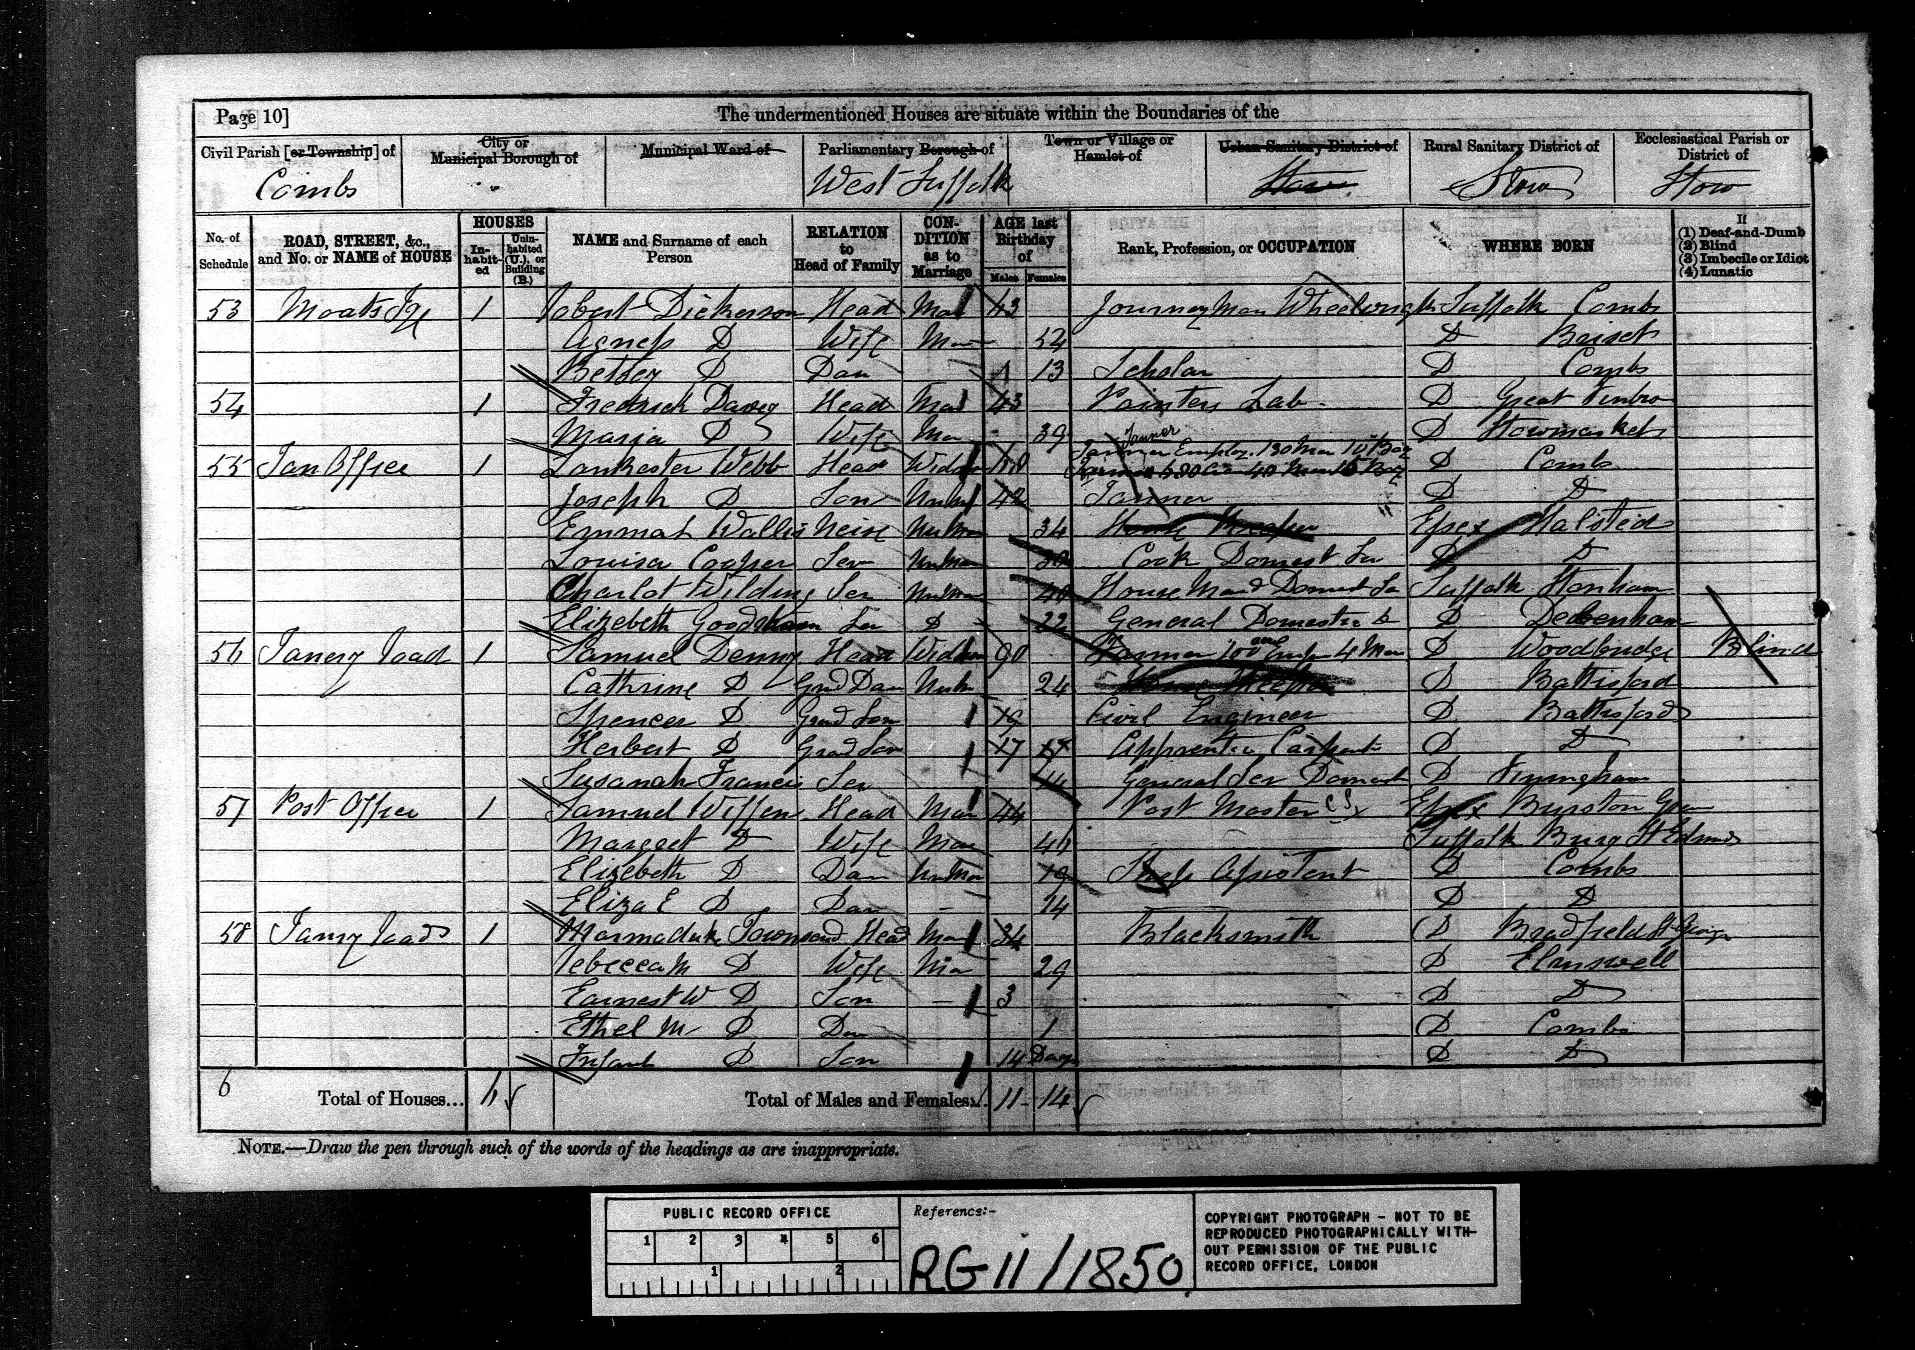 Page 10] The undermentioned Houses are situate within the Boundaries of the
Civil Parish [or Township] of City or Municipal Borough of Municipal Ward of Parliamentary Borough of Town or Village or Hamlet of Urban Sanitary District of Rural Sanitary District of Ecclesiastical Parish or District of
Combs West Suffolk Stow Stow Stow
No. of Schedule ROAD, STREET, &c., and No. or NAME of HOUSE HOUSES In-habit-ed Unin-habited (U.), or Building (B.) NAME and Surname of each Person RELATION to Head of Family CON-DITION as to Marriage AGE last Birthday of Males Females Rank, Profession, or OCCUPATION WHERE BORN If (1) Deaf-and-Dumb (2) Blind (3) Imbecile or Idiot (4) Lunatic
53 Moats 1 Robert Dickerson Head Mar 43 Journeyman Wheelwright Suffolk Combs
Agness D Wife Mar 52 D Briset
Betsey D Dau 13 Scholar D Combs
54 1 Fredrick Davey Head Mar 43 Lab D Great Finbro
Maria D Wife Mar 39 D Stowmarket
55 Tan Office 1 Lankester Webb Head Tanner Employ. 130 Men D Combs
Joseph D Son Unmar 42 Tanner D D
Emmah Wallis Neise Unmar 34 House Keeper Essex Halsted
Louisa Cooper Ser Unmar Cook Domest Ser D D
Charlot Wilding Ser Unmar 40 House Maid Domest Ser Suffolk Stonham
Elizebeth Ser D 22 General Domestic D Debenham
56 Tanery Road 1 Samuel Denny Head Widower 90 Farmer 100 4 Men D Woodbridge Blind
Cathrine D Grnd Dau Unm 24 House Keeper D Battisford
Spencer D Grand Son 19 Civil Engineer D Battisford
Herbert D Grand Son 17 17 Apprentice Carpent D D
Susanah Francis Ser General Ser Domest D Finingham
57 Post Office 1 Samuel Wiffen Head Mar 44 Post Master Essex
Margeet D Wife Mar Suffolk Bury St Edmds
Elizebeth D Dau Unmar 19 Shop Assistent D Combs
Eliza E D Dau - 14 D D
58 Tanry Road 1 Marmaduke Townsend Head Mar 34 Blacksmith D Bradfield St George
Rebecca M D Wife Mar 29 D Elmswell
Earnest W D Son - 3 D D
Ethel M D Dau 1 D Combs
Infant D Son 14 Days D D
6 Total of Houses... Total of Males and Females... 11 - 14
NOTE.—Draw the pen through such of the words of the headings as are inappropriate.
PUBLIC RECORD OFFICE
1 2 3 4 5 6
1 2
Reference:-
RG 11/1850
COPYRIGHT PHOTOGRAPH - NOT TO BE
REPRODUCED PHOTOGRAPHICALLY WITH-
OUT PERMISSION OF THE PUBLIC
RECORD OFFICE, LONDON